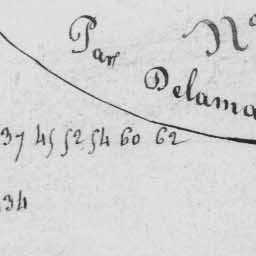 Par
N°
Delama
37 45 52 54 60 62
34